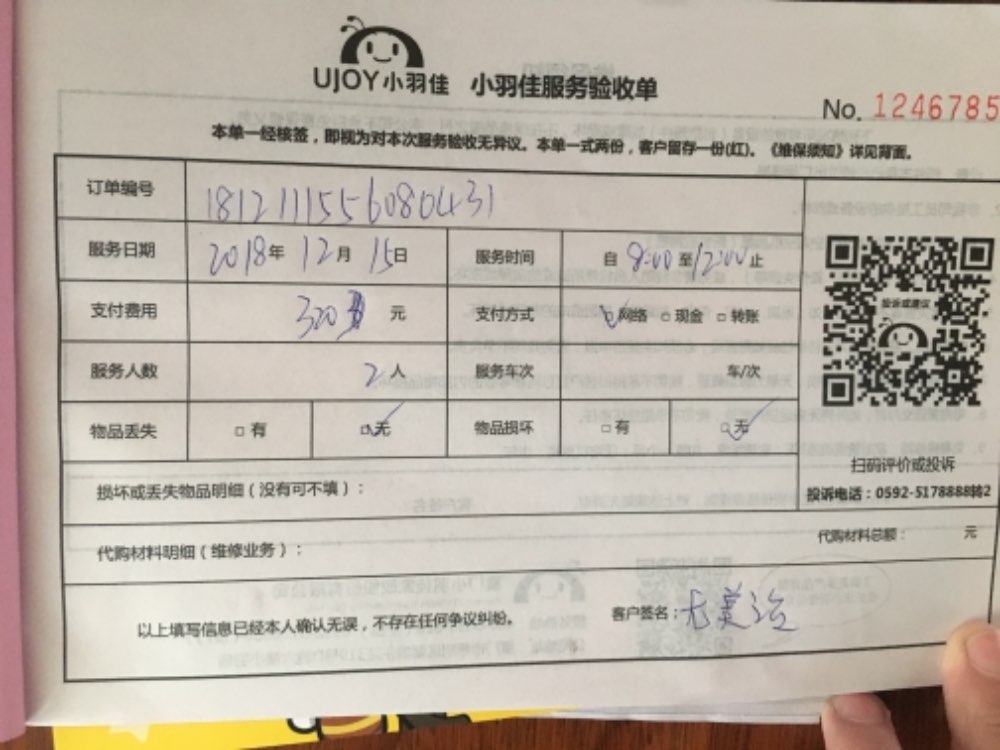 UJOY小羽佳 小羽佳服务验收单
No. 1246785
本单一经核签，即视为对本次服务验收无异议。本单一式两份，客户留存一份(红)。《维保须知》详见背面。
订单编号 1812111556080431
服务日期 2018年 12月 15日 服务时间 自 9:00 至 12:00 止
支付费用 320 元 支付方式 □网络 □现金 □转账
服务人数 2人 服务车次 车/次
物品丢失 □有 □无 物品损坏 □有 □无
投诉或建议
扫码评价或投诉
投诉电话：0592-5178888转2
损坏或丢失物品明细（没有可不填）：
代购材料明细（维修业务）： 代购材料总额： 元
以上填写信息已经本人确认无误，不存在任何争议纠纷。 客户签名：尤美治